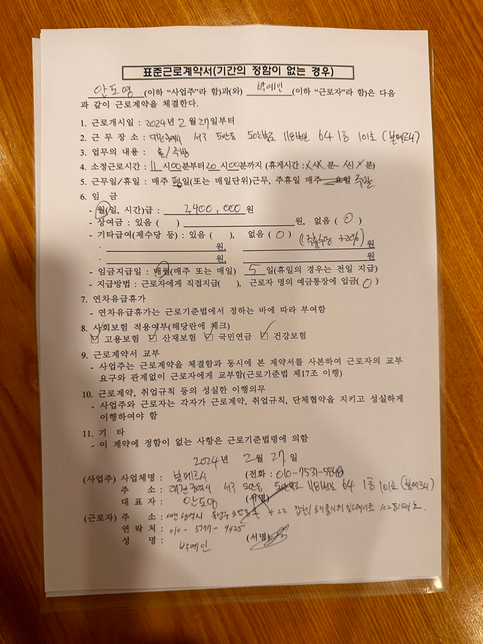 표준근로계약서(기간의 정함이 없는 경우)
안도영 (이하 "사업주"라 함)과(와) 박예인 (이하 "근로자"라 함)은 다음
과 같이 근로계약을 체결한다.
1. 근로개시일 : 2024년 2월 27일부터
2. 근 무 장 소 : 서구 64 1층 101호
3. 업무의 내용 : 홀/주방
4. 소정근로시간 : 11시00분부터20시00분까지 (휴게시간 : 시 분~ 시 분)
5. 근무일/휴일 : 매주 5일(또는 매일단위)근무, 주휴일 매주 주말
6. 임 금
- 월(일, 시간)급 : 2400,000 원
- 상여금 : 있음 ( ) 원, 없음 ( O )
- 기타급여(제수당 등) : 있음 ( ), 없음 ( O )
· 원, 원
· 원, 원
- 임금지급일 : 매월(매주 또는 매일) 5 일(휴일의 경우는 전일 지급)
- 지급방법 : 근로자에게 직접지급( ), 근로자 명의 예금통장에 입금( O )
7. 연차유급휴가
- 연차유급휴가는 근로기준법에서 정하는 바에 따라 부여함
8. 사회보험 적용여부(해당란에 체크)
☑ 고용보험 ☑ 산재보험 ☑ 국민연금 ☑ 건강보험
9. 근로계약서 교부
- 사업주는 근로계약을 체결함과 동시에 본 계약서를 사본하여 근로자의 교부
요구와 관계없이 근로자에게 교부함(근로기준법 제17조 이행)
10. 근로계약, 취업규칙 등의 성실한 이행의무
- 사업주와 근로자는 각자가 근로계약, 취업규칙, 단체협약을 지키고 성실하게
이행하여야 함
11. 기 타
- 이 계약에 정함이 없는 사항은 근로기준법령에 의함
2024년 2월 27일
(사업주) 사업체명 : (전화 : 010-7537-
주 소 : 대전광역시 서구 64 1층 101호
대 표 자 : 안도영 (서명)
(근로자) 주 소 : 대전광역시
연 락 처 : 010-
성 명 : 박예인 (서명)